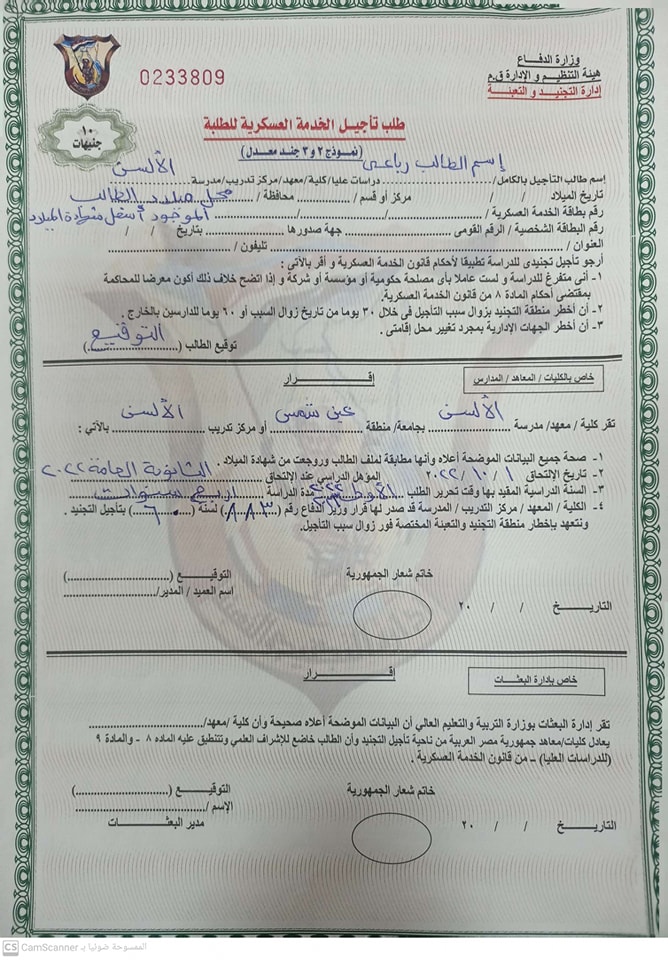 وزارة الدفاع
هيئة التنظيم و الإدارة ق.م
إدارة التجنيد و التعبئة
0233809
١٠
جنيهات
طلب تأجيل الخدمة العسكرية للطلبة
(نموذج ٢ و ٣ جند معدل)
إسم طالب التأجيل بالكامل/ إسم الطالب رباعى دراسات عليا/ كلية/ معهد/ مركز تدريب/ مدرسة الألسن
تاريخ الميلاد / / مركز أو قسم / محافظة / محل ميلاد الطالب
رقم بطاقة الخدمة العسكرية / / / / الموجود أسفل شهادة الميلاد
رقم البطاقة الشخصية / الرقم القومى جهة صدورها بتاريخ / /
العنوان / تليفون /
أرجو تأجيل تجنيدى للدراسة تطبيقا لأحكام قانون الخدمة العسكرية و أقر بالآتى :
١ - أنى متفرغ للدراسة و لست عاملا بأى مصلحة حكومية أو مؤسسة أو شركة و إذا اتضح خلاف ذلك أكون معرضا للمحاكمة
بمقتضى أحكام المادة ٨ من قانون الخدمة العسكرية.
٢ - أن أخطر منطقة التجنيد بزوال سبب التأجيل فى خلال ٣٠ يوما من تاريخ زوال السبب أو ٦٠ يوما للدارسين بالخارج .
٣ - أن أخطر الجهات الإدارية بمجرد تغيير محل إقامتى .
توقيع الطالب ( التوقيع )
خاص بالكليات / المعاهد / المدارس
إقــرار
تقر كلية / معهد/ مدرسة الألسن بجامعة/ منطقة عين شمس أو مركز تدريب الألسن بالآتي :
١ - صحة جميع البيانات الموضحة أعلاه وأنها مطابقة لملف الطالب وروجعت من شهادة الميلاد .
٢ - تاريخ الإلتحاق ١ / ١٠ / ٢٠٢٢ المؤهل الدراسي عند الإلتحاق الثانوية العامة ٢٠٢٢
٣ - السنة الدراسية المقيد بها وقت تحرير الطلب الأولى مدة الدراسة أربع سنوات
٤ - الكلية / المعهد / مركز التدريب / المدرسة قد صدر لها قرار وزير الدفاع رقم ( ٨٨٣ ) لسنة ( ٦٠ ) بتأجيل التجنيد .
ونتعهد بإخطار منطقة التجنيد والتعبئة المختصة فور زوال سبب التأجيل.
خاتم شعار الجمهورية
التوقيع ( )
اسم العميد / المدير/
التاريـــخ / / ٢٠
خاص بإدارة البعثات
إقــرار
تقر إدارة البعثات بوزارة التربية والتعليم العالي أن البيانات الموضحة أعلاه صحيحة وأن كلية /معهد/
يعادل كليات/معاهد جمهورية مصر العربية من ناحية تأجيل التجنيد وأن الطالب خاضع للإشراف العلمي وتنطبق عليه الماده ٨ - والمادة ٩
(للدراسات العليا) – من قانون الخدمة العسكرية .
خاتم شعار الجمهورية
التوقيع ( )
الإسم /
مدير البعثــات
التاريـــخ / / ٢٠
CS CamScanner الممسوحة ضوئيا بـ